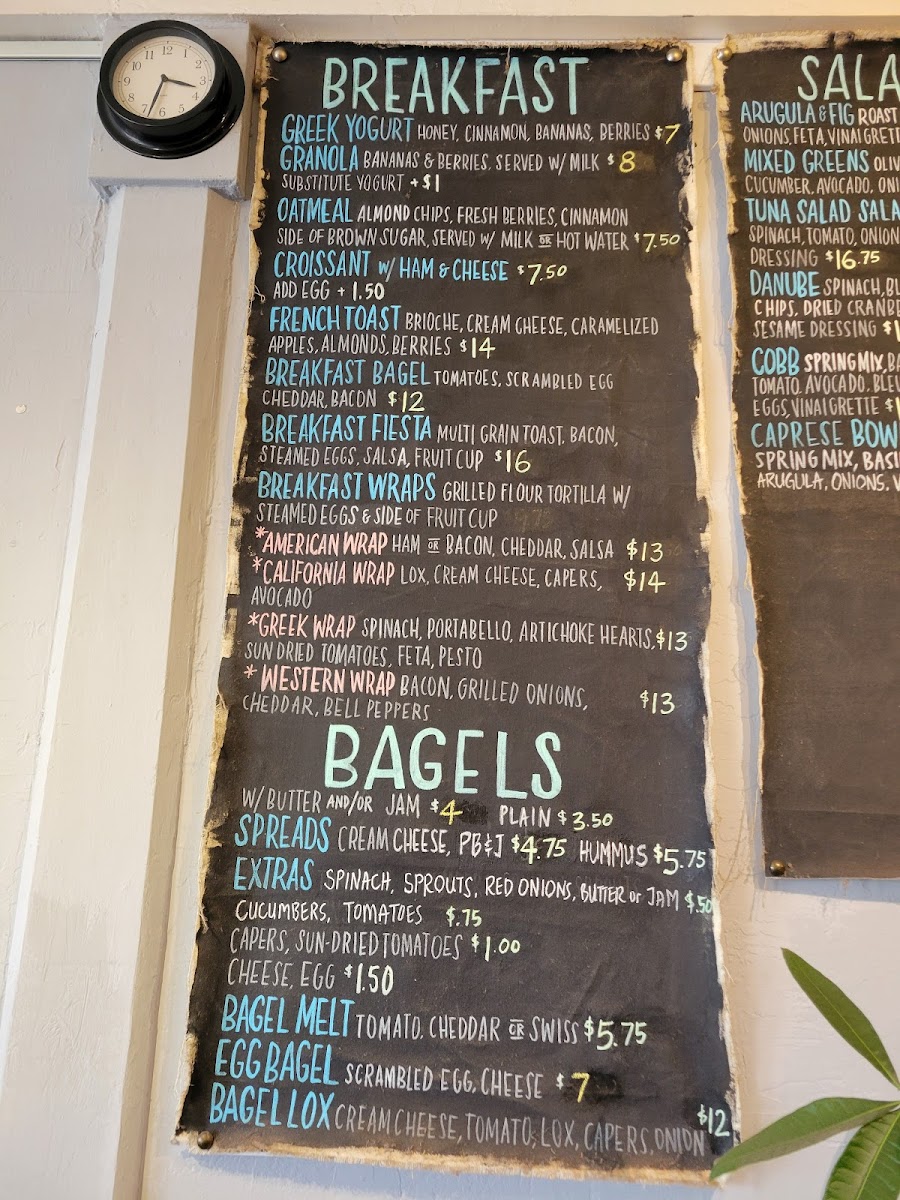 12
1
2
3
4
5
6
7
8
9
10
11
BREAKFAST
GREEK YOGURT HONEY, CINNAMON, BANANAS, BERRIES $7
GRANOLA BANANAS & BERRIES, SERVED W/ MILK $8
SUBSTITUTE YOGURT +$1
OATMEAL ALMOND CHIPS, FRESH BERRIES, CINNAMON
SIDE OF BROWN SUGAR, SERVED W/ MILK OR HOT WATER $7.50
CROISSANT W/ HAM & CHEESE $7.50
ADD EGG + 1.50
FRENCH TOAST BRIOCHE, CREAM CHEESE, CARAMELIZED
APPLES, ALMONDS, BERRIES $14
BREAKFAST BAGEL TOMATOES, SCRAMBLED EGG
CHEDDAR, BACON $12
BREAKFAST FIESTA MULTI GRAIN TOAST, BACON,
STEAMED EGGS, SALSA, FRUIT CUP $16
BREAKFAST WRAPS GRILLED FLOUR TORTILLA W/
STEAMED EGGS & SIDE OF FRUIT CUP
*AMERICAN WRAP HAM OR BACON, CHEDDAR, SALSA $13
*CALIFORNIA WRAP LOX, CREAM CHEESE, CAPERS, $14
AVOCADO
*GREEK WRAP SPINACH, PORTABELLO, ARTICHOKE HEARTS, $13
SUN DRIED TOMATOES, FETA, PESTO
*WESTERN WRAP BACON, GRILLED ONIONS, $13
CHEDDAR, BELL PEPPERS
BAGELS
W/ BUTTER AND/OR JAM $4 PLAIN $3.50
SPREADS CREAM CHEESE, PB&J $4.75 HUMMUS $5.75
EXTRAS SPINACH, SPROUTS, RED ONIONS, BUTTER or JAM $.50
CUCUMBERS, TOMATOES $.75
CAPERS, SUN-DRIED TOMATOES $1.00
CHEESE, EGG $1.50
BAGEL MELT TOMATO, CHEDDAR OR SWISS $5.75
EGG BAGEL SCRAMBLED EGG, CHEESE $7
BAGEL LOX CREAM CHEESE, TOMATO, LOX, CAPERS, ONION $12
SALA
ARUGULA & FIG ROAST
ONIONS, FETA, VINAIGRETTE
MIXED GREENS OLIV
CUCUMBER, AVOCADO, ONI
TUNA SALAD SALA
SPINACH, TOMATO, ONION
DRESSING $16.75
DANUBE SPINACH, BL
CHIPS, DRIED CRANBE
SESAME DRESSING $1
COBB SPRING MIX, BA
TOMATO, AVOCADO, BLEU
EGGS, VINAIGRETTE $1
CAPRESE BOW
SPRING MIX, BASI
ARUGULA, ONIONS, V